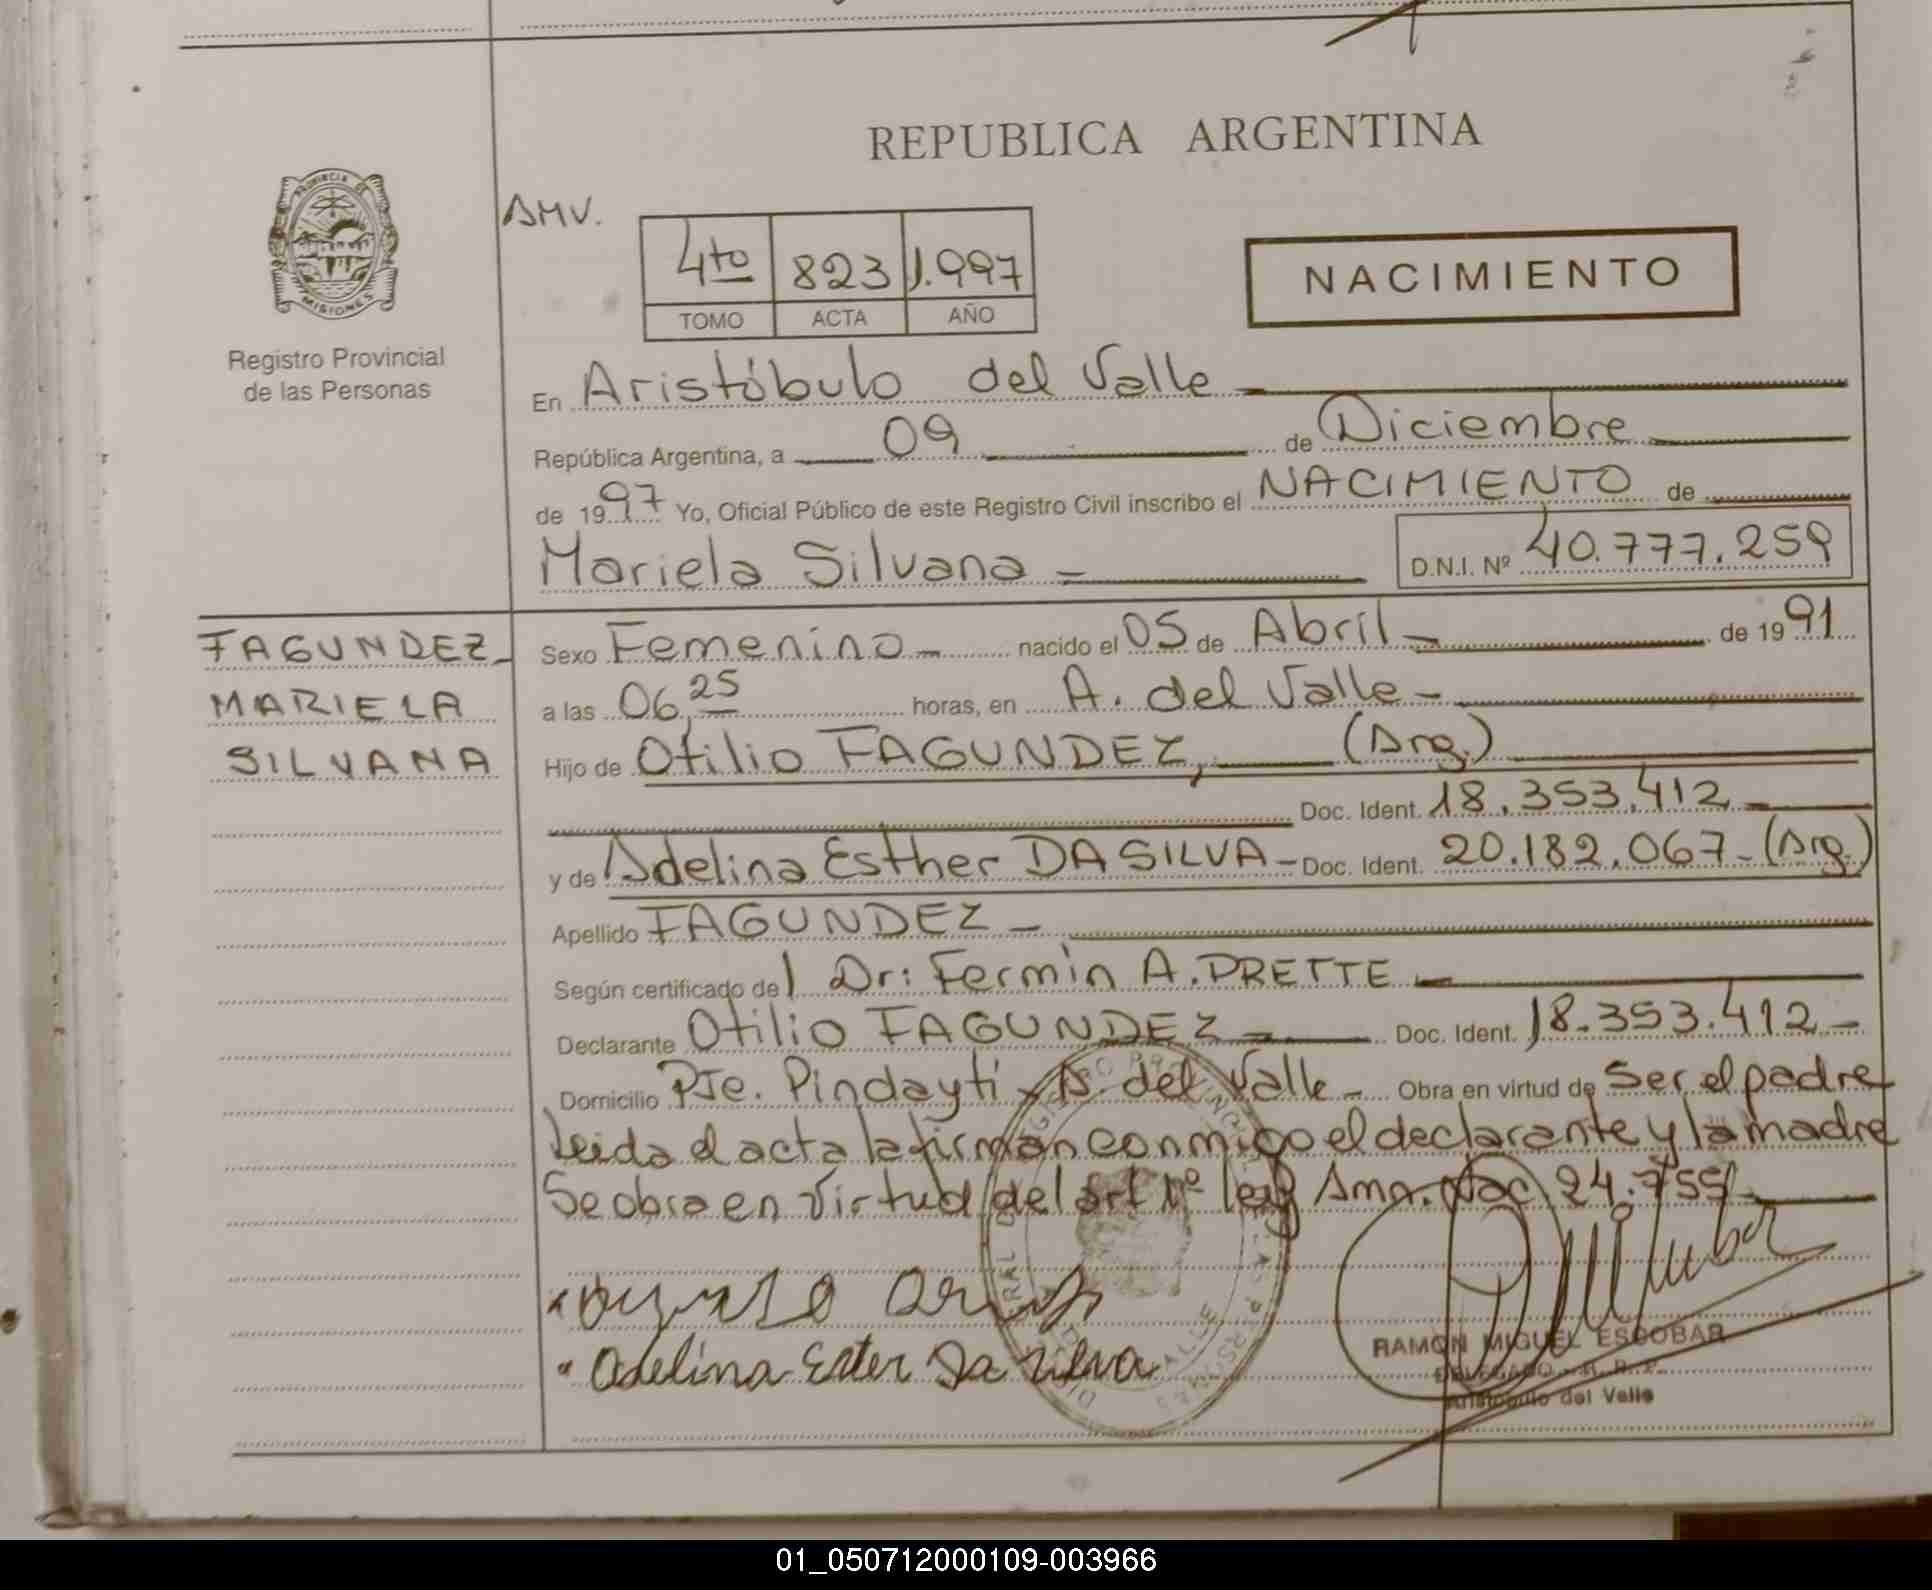 REPUBLICA ARGENTINA
PROVINCIA DE MISIONES
Registro Provincial
de las Personas
AMV.
4to 823 1.997
TOMO ACTA AÑO
NACIMIENTO
En Aristóbulo del Valle
República Argentina, a 09 de Diciembre
de 1997 Yo, Oficial Público de este Registro Civil inscribo el NACIMIENTO de
Mariela Silvana D.N.I. Nº 40.777.259
FAGUNDEZ
MARIELA
SILVANA
Sexo Femenino nacido el 05 de Abril de 1991
a las 06,25 horas, en A. del Valle
Hijo de Otilio FAGUNDEZ, (Arg.)
Doc. Ident. 18.353.412
y de Adelina Esther DA SILVA - Doc. Ident. 20.182.067 - (Arg.)
Apellido FAGUNDEZ
Según certificado del Dr: Fermin A. PRETTE
Declarante Otilio FAGUNDEZ Doc. Ident. 18.353.412
Domicilio PJe. Pindayti - A. del Valle - Obra en virtud de Ser el padre
Leida el acta la firman conmigo el declarante y la madre
Se obra en virtud del art 1º ley Amn. Nac. 24.755
Adelina Ester Da silva
RAMON MIGUEL ESCOBAR
DELEGADO - R. R. P.
Aristóbulo del Valle
01_050712000109-003966